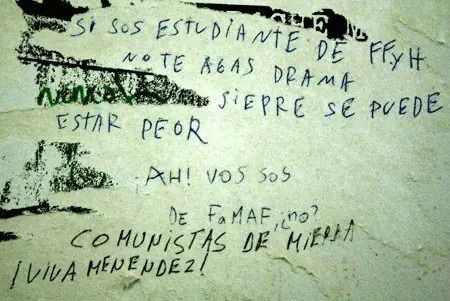 SI SOS ESTUDIANTE DE FFyH
NO TE AGAS DRAMA
SIEPRE SE PUEDE
ESTAR PEOR
AH! VOS SOS
DE FaMAF, ¿no?
COMUNISTAS DE MIERDA
¡VIVA MENENDEZ!